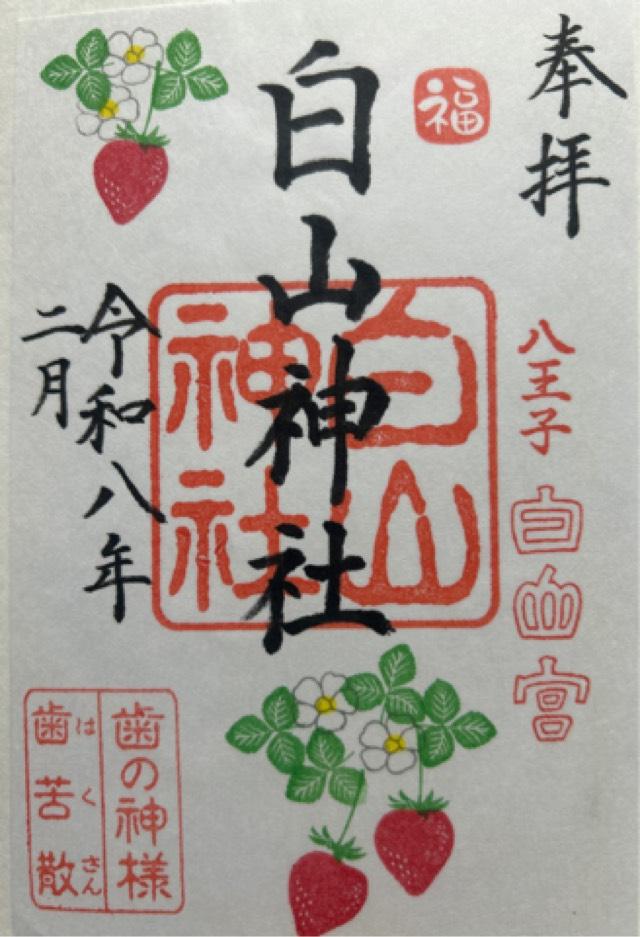 奉拝
八王子
白山宮
福
白山神社
白山
神社
令和八年
二月
歯の神様
はくさん
歯苦散